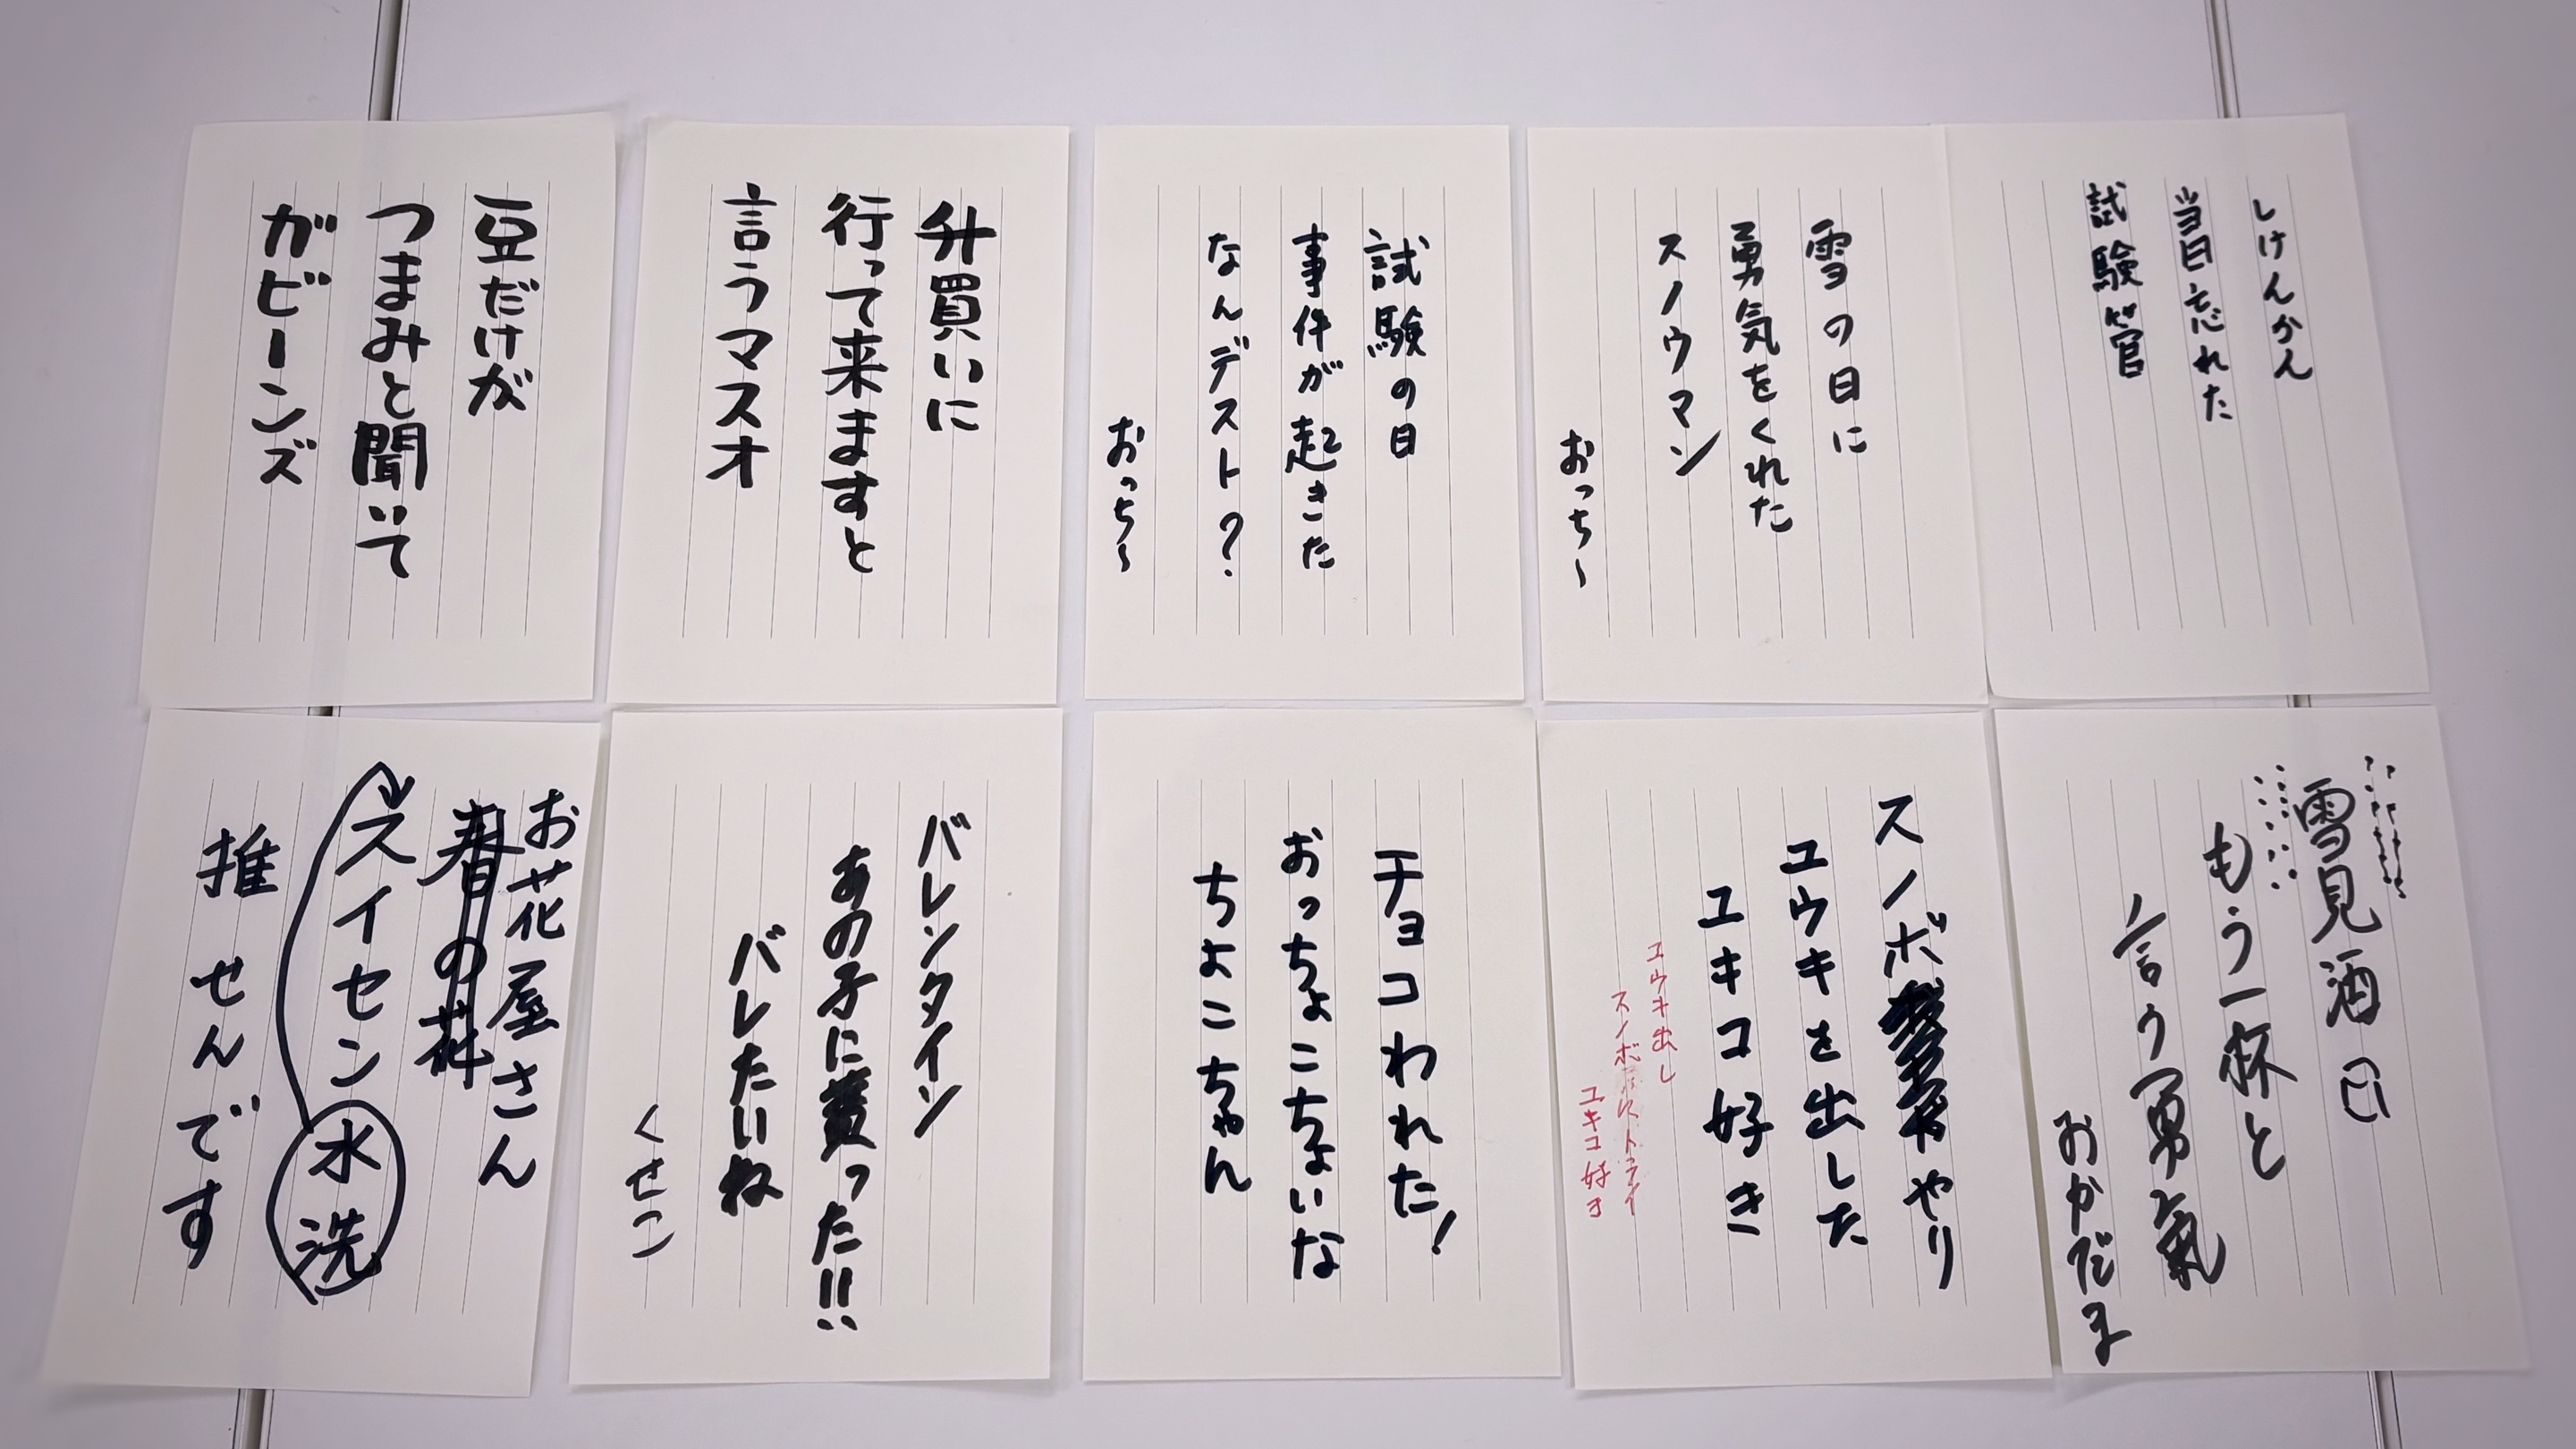 しけんかん
当日忘れた
試験管
雪の日に
勇気をくれた
スノウマン
おっち〜
試験の日
事件が起きた
なんデスト?
おっち〜
升買いに
行って来ますと
言うマスオ
豆だけが
つまみと聞いて
ガビーンズ
雪見酒
もう一杯と
言う勇氣
おかだま
スノボ
やり
ユウキを出した
ユキコ好き
ユウキ出し
スノボ
トライ
ユキコ好き
チョコわれた!
おっちょこちょいな
ちよこちゃん
バレンタイン
あの子に貰った!!
バレたいね
くせこ
お花屋さん
春の花
スイセン
水洗
推せんです